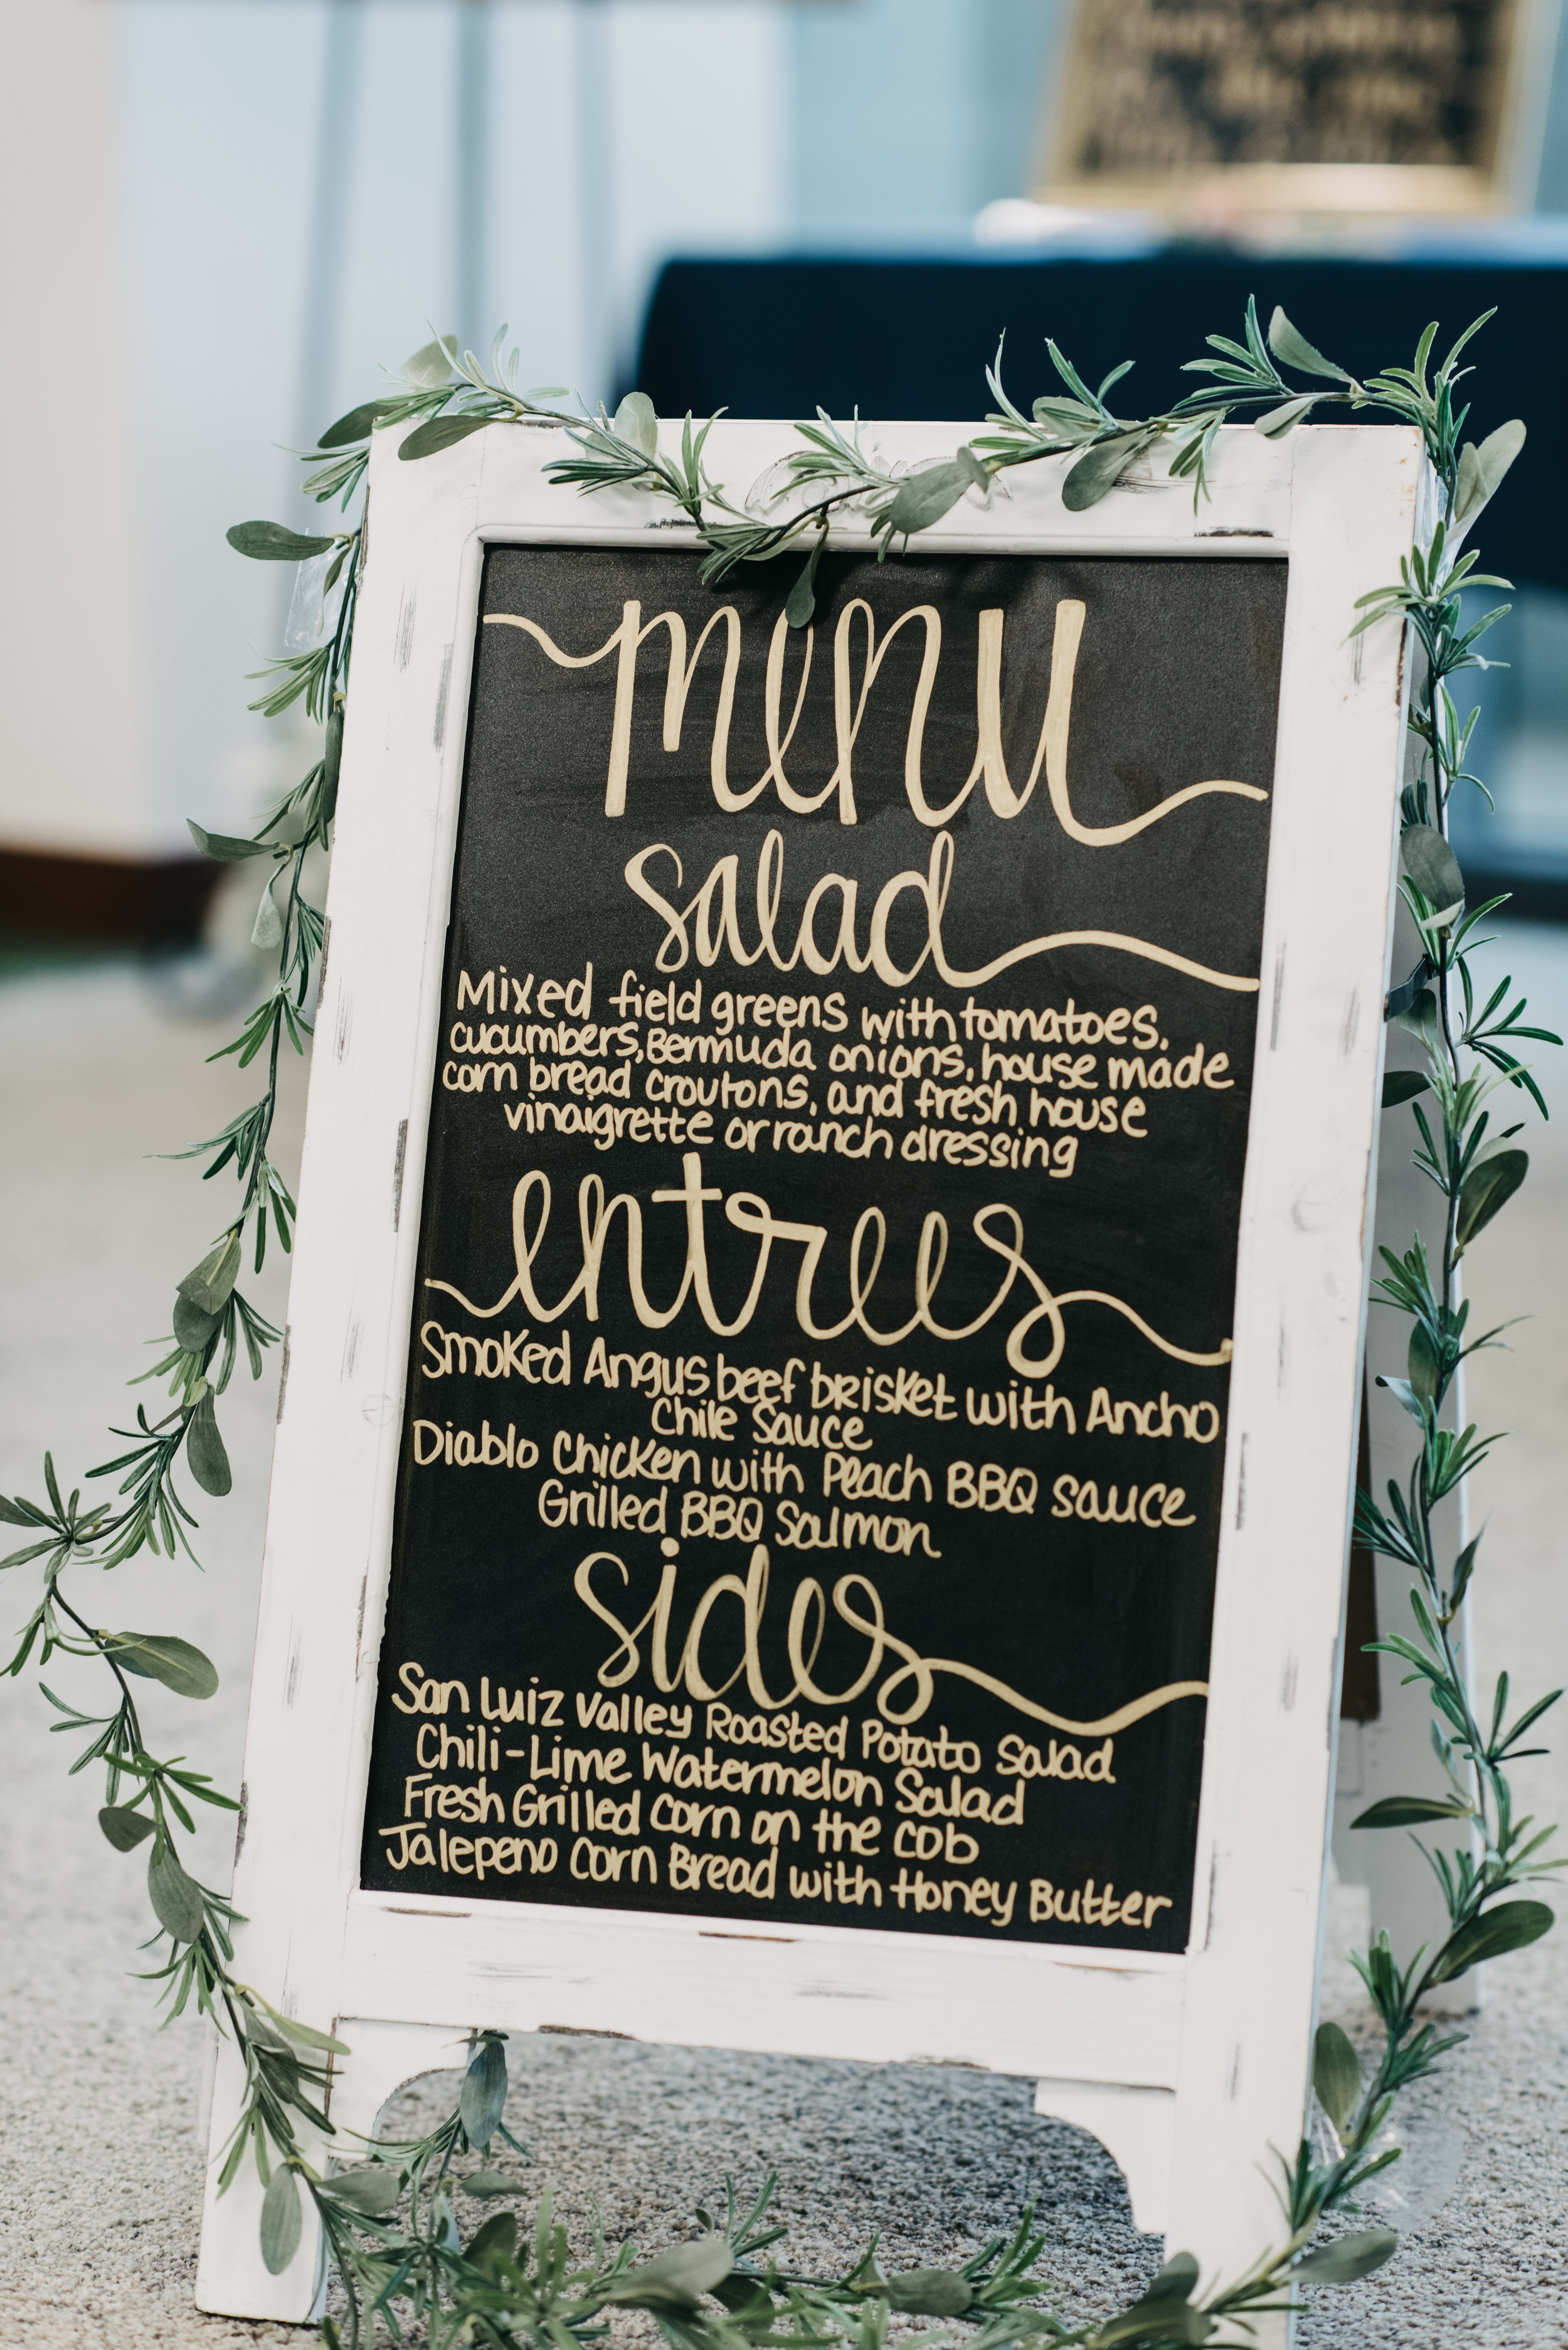 menu
salad
Mixed field greens with tomatoes,
cucumbers, Bermuda onions, house made
corn bread croutons, and fresh house
vinaigrette or ranch dressing
entrees
Smoked Angus beef brisket with Ancho
Chile Sauce
Diablo Chicken with Peach BBQ sauce
Grilled BBQ Salmon
sides
San Luiz Valley Roasted Potato Salad
Chili-Lime Watermelon Salad
Fresh Grilled corn on the cob
Jalepeno Corn Bread with Honey Butter